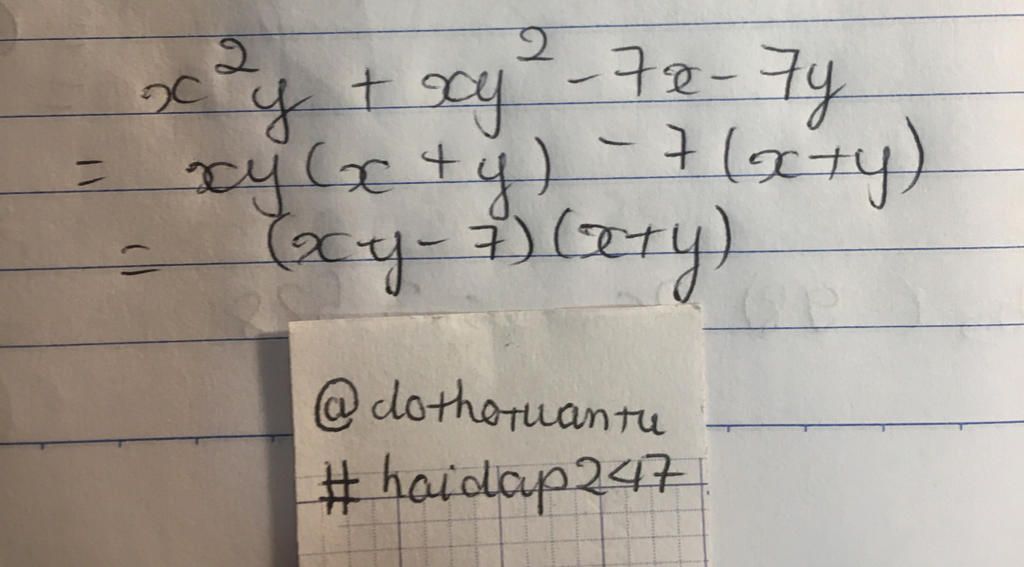 x²y + xy² - 7x - 7y
= xy(x + y) - 7(x+y)
= (xy - 7)(x+y)
@dothotuantu
#haidap247